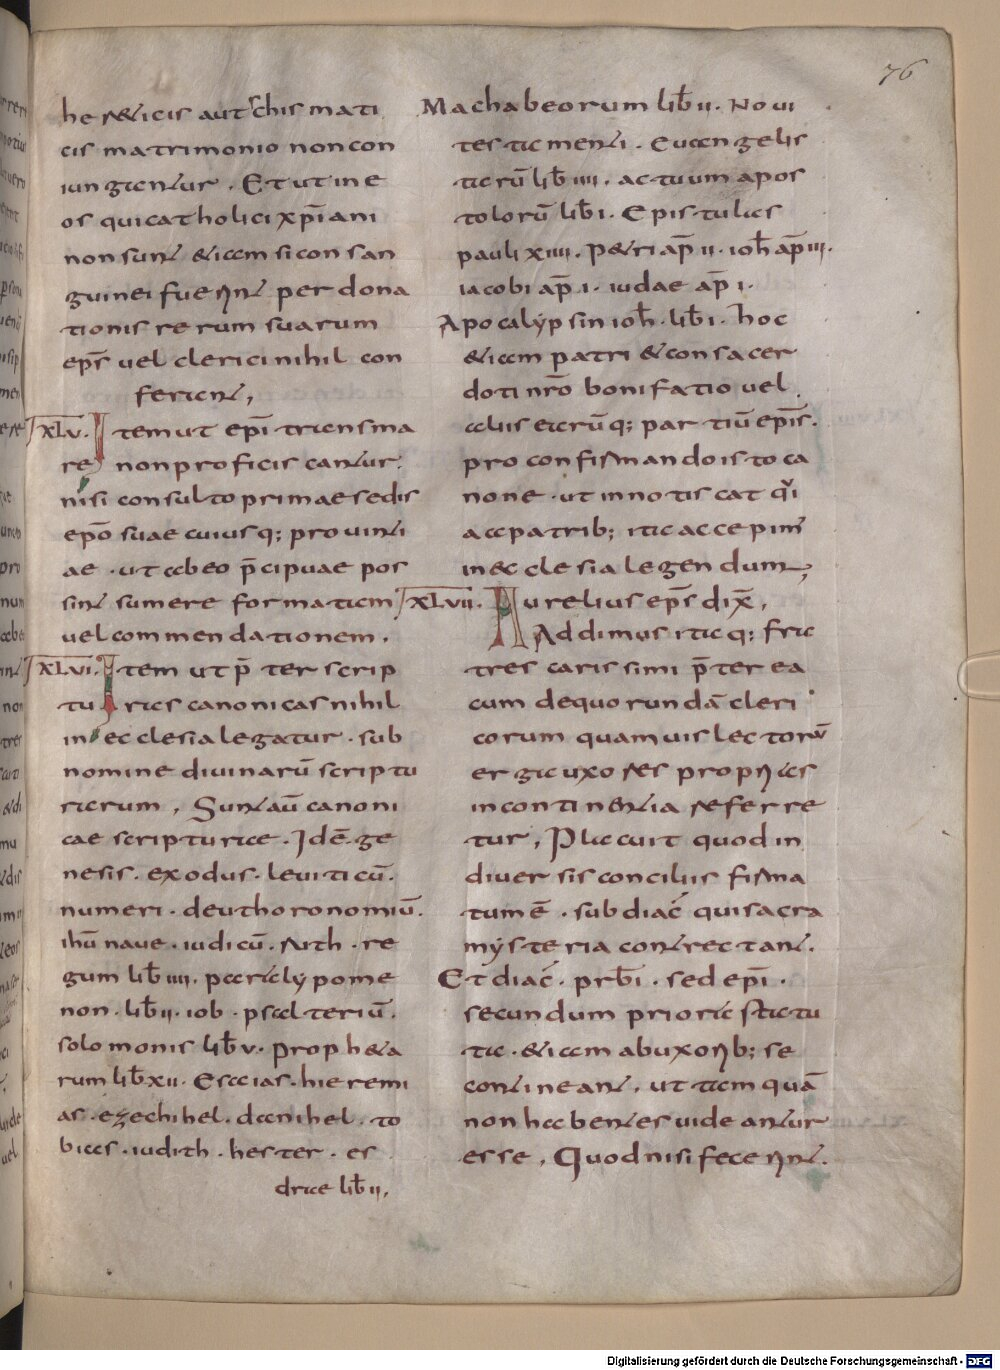 76
hereticis aut schismati
cis matrimonio non con
iungantur. Et ut in e
os qui catholici xp̄iani
non sunt etiam si con san
guinei fuerint per dona
tionis rerum suarum
ep̄s uel clerici nihil con
ferant,
XLV. Item ut ep̄i transma
re non proficiscantur.
nisi consulto primae sedis
ep̄o suae cuiusq; prouinti
ae. ut ab eo p̄cipuae pos
sint sumere formatam
uel commendationem.
XLVI. Item ut p̄ter scrip
turas canonicas nihil
in ecclesia legatur. sub
nomine diuinarū scriptu
rarum, Sunt aū canoni
cae scripturae. Idē. ge
nesis. exodus. leuiticū.
numeri. deuthoronomiū.
ihū naue. iudicū. ruth. re
gum lib̄ iiii. paralypome
non. lib̄ ii. iob. psalteriū.
solomonis lib̄ v. Propheta
rum lib̄ xii. Esaias. hieremi
as. ezechihel. danihel. to
bias. iudith. hester. es
drae lib̄ ii,
Machabeorum lib̄ ii. Noui
testamenti. Euangelis
tarū lib̄ iiii. actuum apos
tolorū lib̄ i. Epistulas
pauli xiiii. Petri ap̄ ii. ioh̄ ap̄ iii.
iacobi ap̄ i. iudae ap̄ i.
Apocalypsin ioh̄. lib̄ i. hoc
etiam patri et consacer
doti nr̄o bonifatio uel
aliis earūq; partiū ep̄is.
pro confirmando isto ca
none. ut innotiscat qui
a a patrib; ita accepim'
in ecclesia legendum,
XLVII. Aurelius ep̄s dix̄,
Addimus itaq; fra
tres carissimi p̄terea
cum de quorundā cleri
corum quamuis lectorū
erga uxores proprias
incontinentia referre
tur, Placuit quod in
diuersis conciliis firma
tum ē. subdiac̄ qui sacra
mysteria contrectant.
Et diac̄. prb̄i. sed ep̄i.
secundum priora statu
ta. etiam ab uxorib; se
contineant. ut tamquā
non habentes uideantur
esse, Quod nisi fecerint.
Digitalisierung gefördert durch die Deutsche Forschungsgemeinschaft - DFG